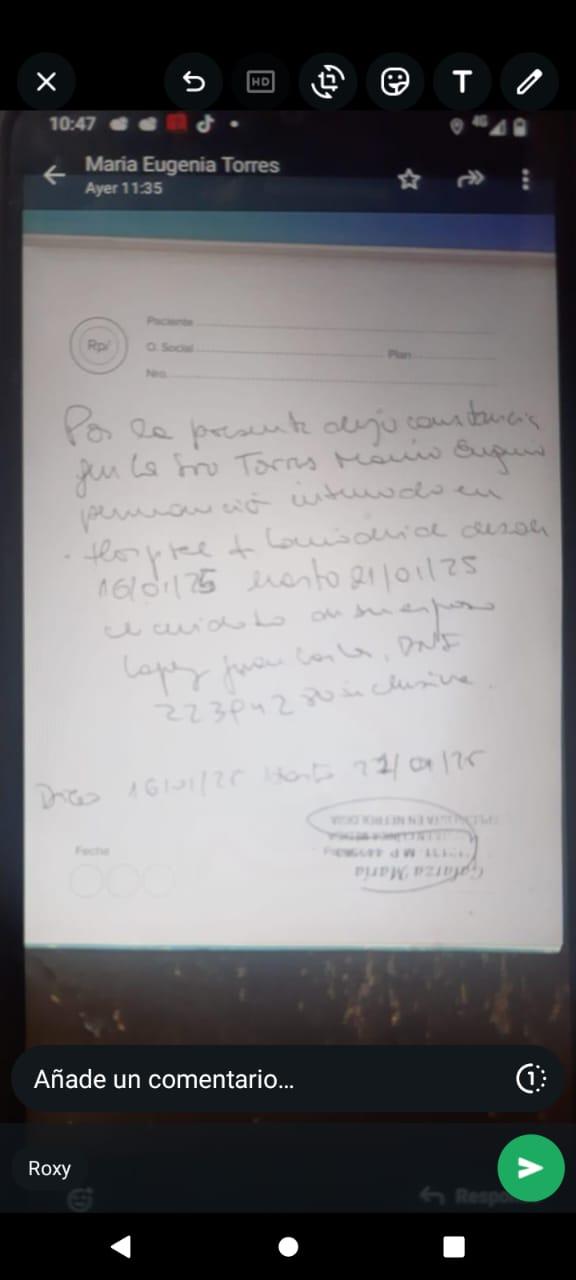 HD
T
10:47
4G
Maria Eugenia Torres
Ayer 11:35
Rp/
Paciente
O. Social
Plan
Nro.
Por la presente dejo constancia
que la Sra Torres María Eugenia
permaneció internado en
Hospital
desde
16/01/25 hasta 21/01/25
al cuidado de su esposo
Lopez Juan Carlos, DNI
inclusive.
Digo 16/01/25 Hasta
ESPECIALISTA EN NEFROLOGIA
EN CLINICA MEDICA
M.P.
Galarza María
Fecha
Añade un comentario...
1
Roxy